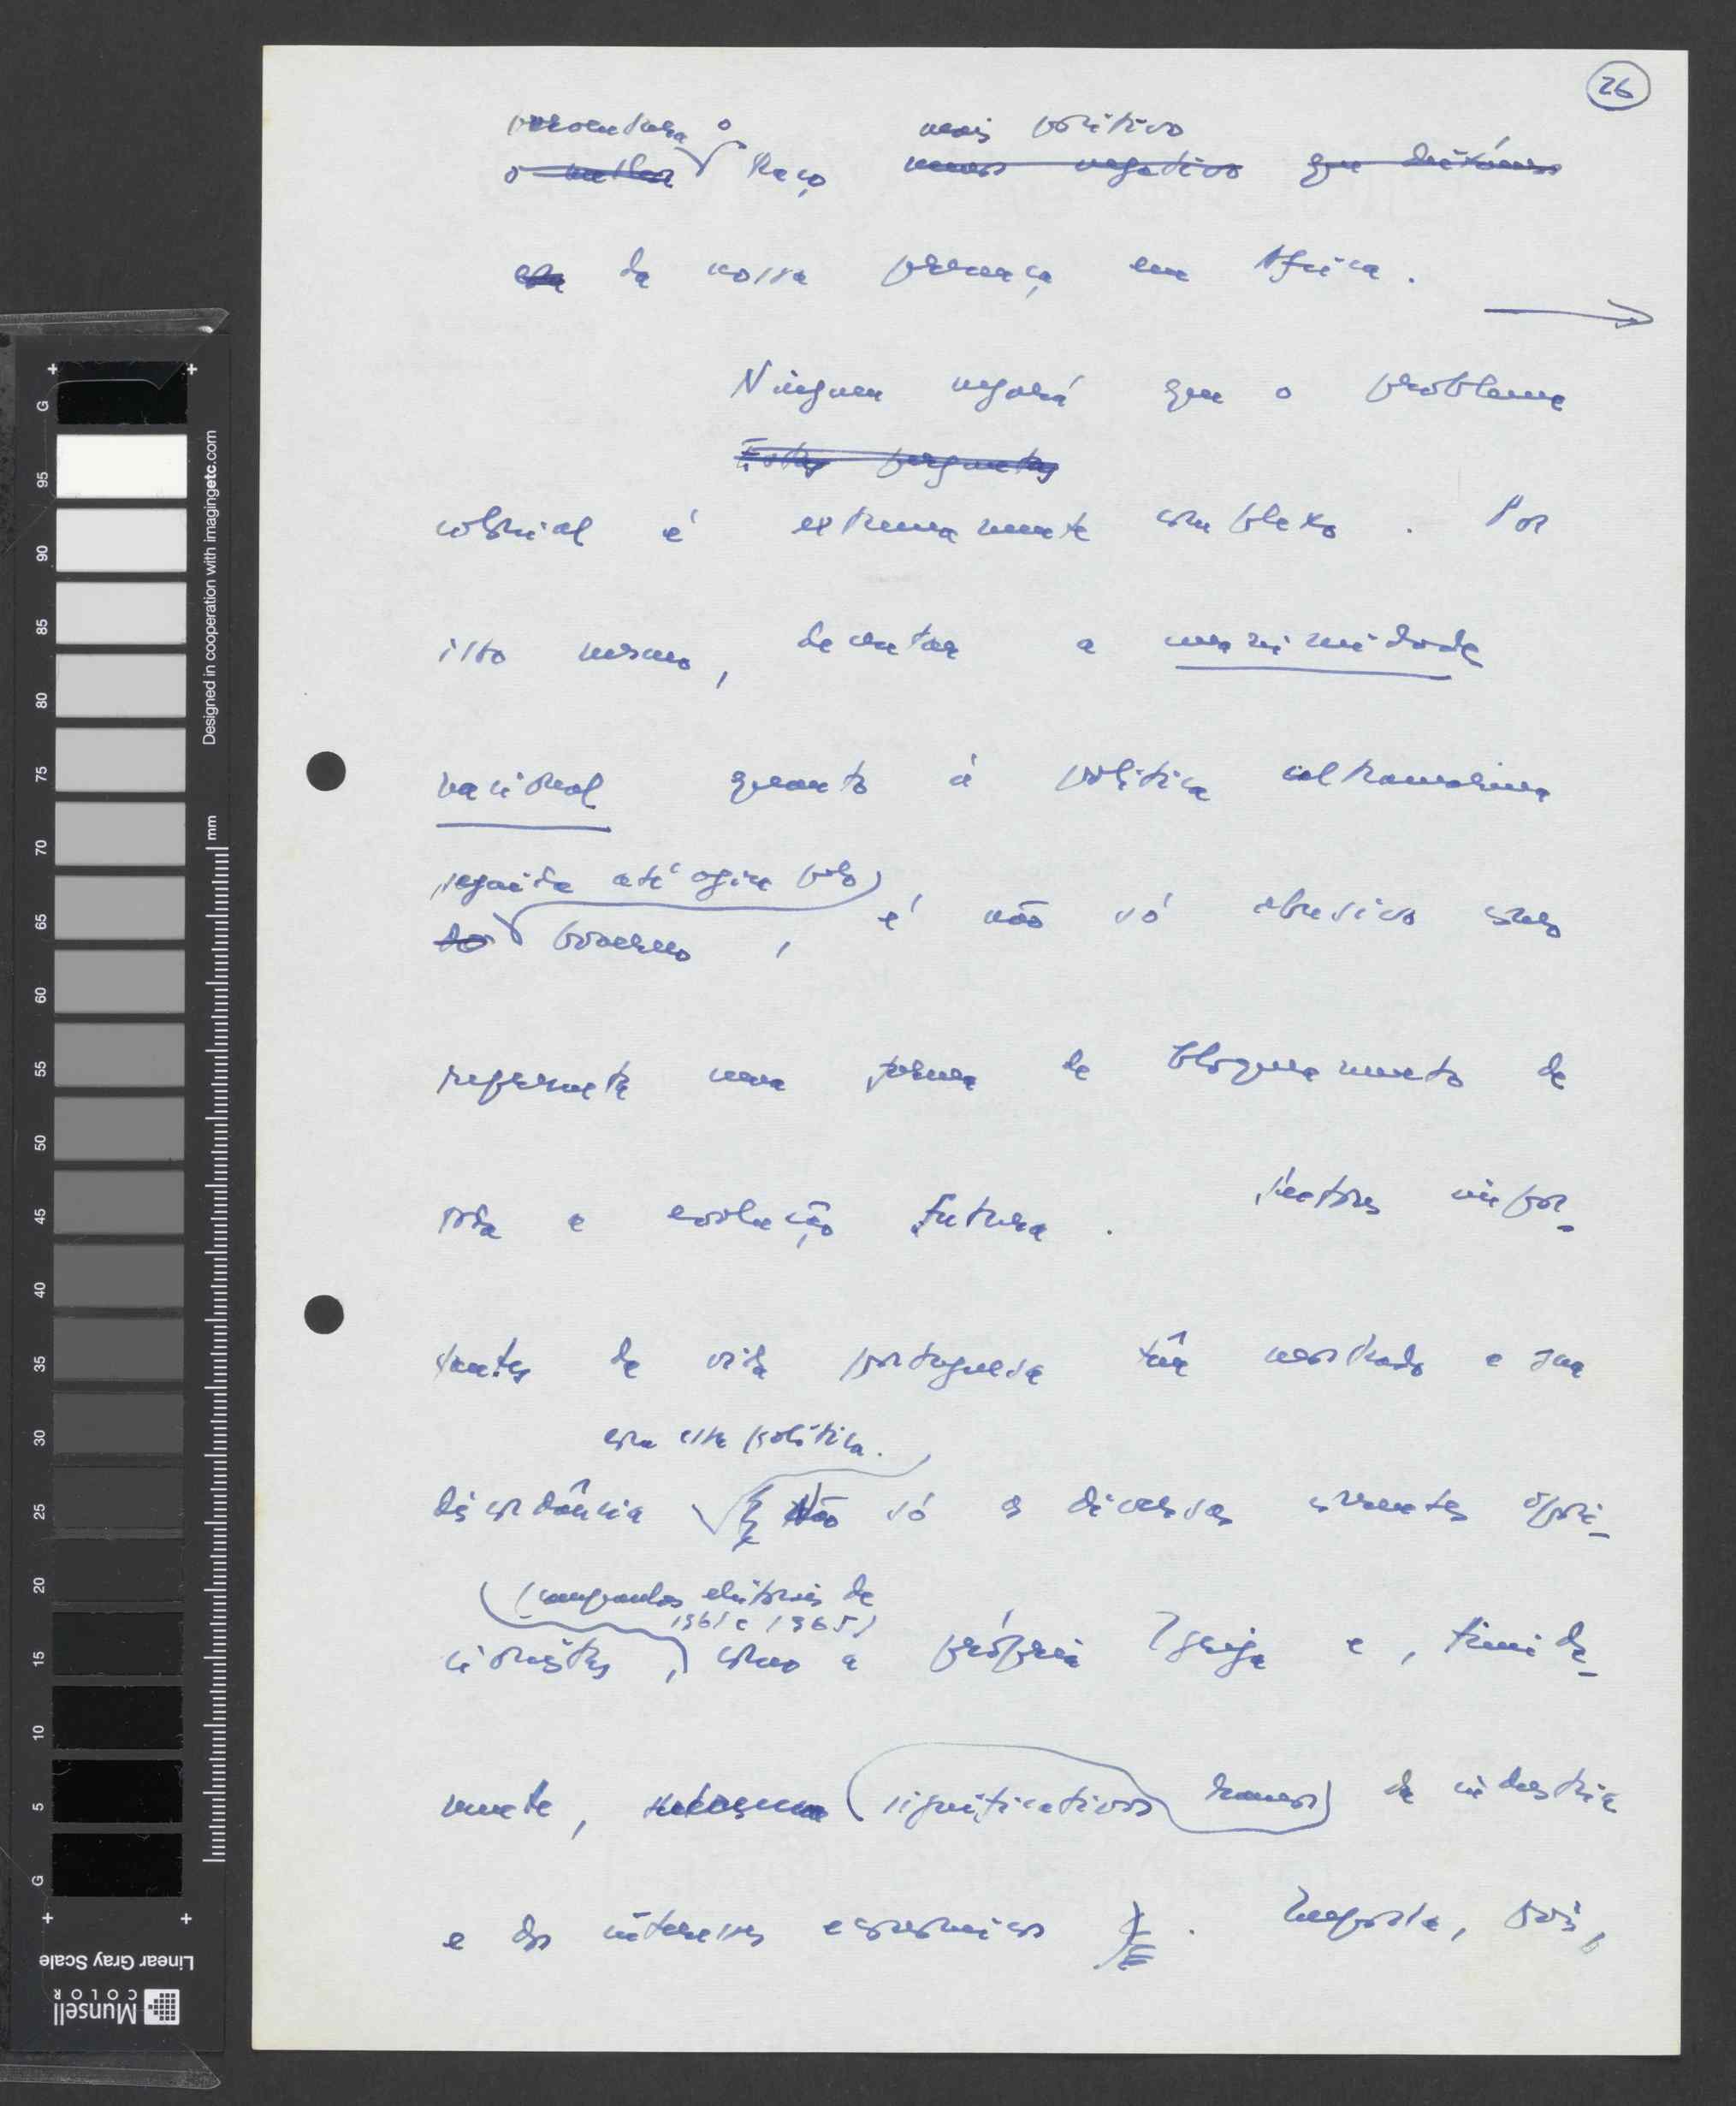 26
porventura o mais positivo
o melhor traço menos negativo que deixámos
da nossa presença em Africa.
Ninguem negará que o problema
Estas perguntas
colonial é extremamente complexo. Por
isso mesmo, decretar a unanimidade
nacional quanto à politica ultramarina
seguida até agora pelo
do Governo, é não só abusivo como
representa uma forma de bloqueamento de
toda a evolução futura. Sectores impor-
tantes da vida portuguesa têm mostrado a sua
com essa politica.
discordância Não só as diversas correntes oposi-
(campanhas eleitorais de
1961 e 1965)
cionistas, como a própria Igreja e, timida-
mente, significativos ramos da industria
e dos interesses economicos. Importa, pois,
Designed in cooperation with imagingetc.com
mm
G
95
90
85
80
75
70
65
60
55
50
45
40
35
30
25
20
15
10
5
G
Linear Gray Scale
Munsell
COLOR